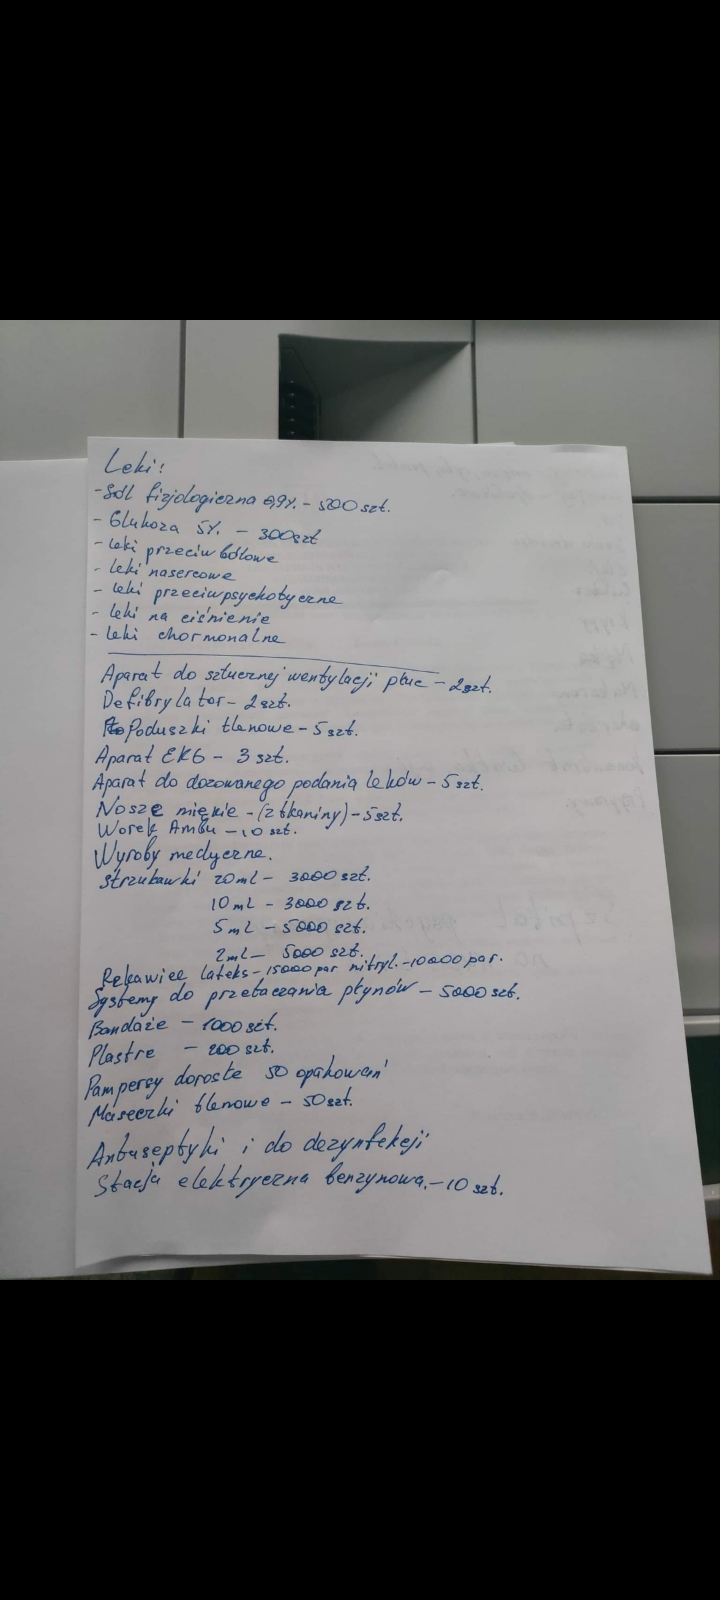 Leki:
- Sól fizjologiczna 0,9%. - 500 szt.
- Glukoza 5%. - 300szt
- leki przeciwbólowe
- leki nasercowe
- leki przeciwpsychotyczne
- leki na ciśnienie
- leki chormonalne
Aparat do sztucznej wentylacji płuc - 2szt.
Defibrylator - 2szt.
Poduszki tlenowe - 5szt.
Aparat EKG - 3 szt.
Aparat do dozowanego podania leków - 5szt.
Nosze miękie - (z tkaniny) - 5szt.
Worek Ambu - 10 szt.
Wyroby medyczne.
Strzukawki 20ml - 3000 szt.
10ml - 3000 szt.
5ml - 5000 szt.
2ml - 5000 szt.
Rękawice lateks - 15000 par nitryl. - 10000 par.
Systemy do przetaczania płynów - 5000szt.
Bandaże - 1000 szt.
Plastre - 200 szt.
Pampersy dorosłe 50 opakowań
Maseczki tlenowe - 50szt.
Antyseptyki i do dezynfekcji
Stacja elektryczna benzynowa. - 10 szt.